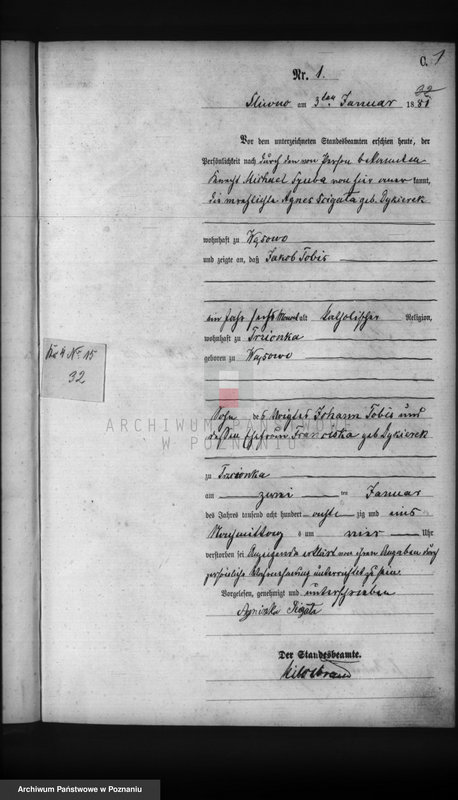 C. 1
Nr. 1.
am 3ten Januar 1881
32
Vor dem unterzeichneten Standesbeamten erschien heute, der
Persönlichkeit nach durch den von Person bekannten
Knecht Michael von hier kannt,
die verehelichte Agnes geb. Dykierek
wohnhaft zu Wąsowo
und zeigte an, daß Jakob Tobis
ein Jahr sechs Monat alt katholischer Religion,
wohnhaft zu Trzionka
geboren zu Wąsowo
Kr. 4 No. 15
32
ARCHIWUM PAŃSTWOWE
W POZNANIU
Sohn des Johann Tobis und
dessen Ehefrau geb. Dykierek
zu Trzcionka
am zwei ten Januar
des Jahres tausend acht hundert acht zig und eins
Nachmittag s um vier Uhr
verstorben sei. Anzeigende erklärt von ihren Angaben durch
persönliche Wahrnehmung unterrichtet zu sein.
Vorgelesen, genehmigt und unterschrieben
Der Standesbeamte.
Hildebrand
Archiwum Państwowe w Poznaniu